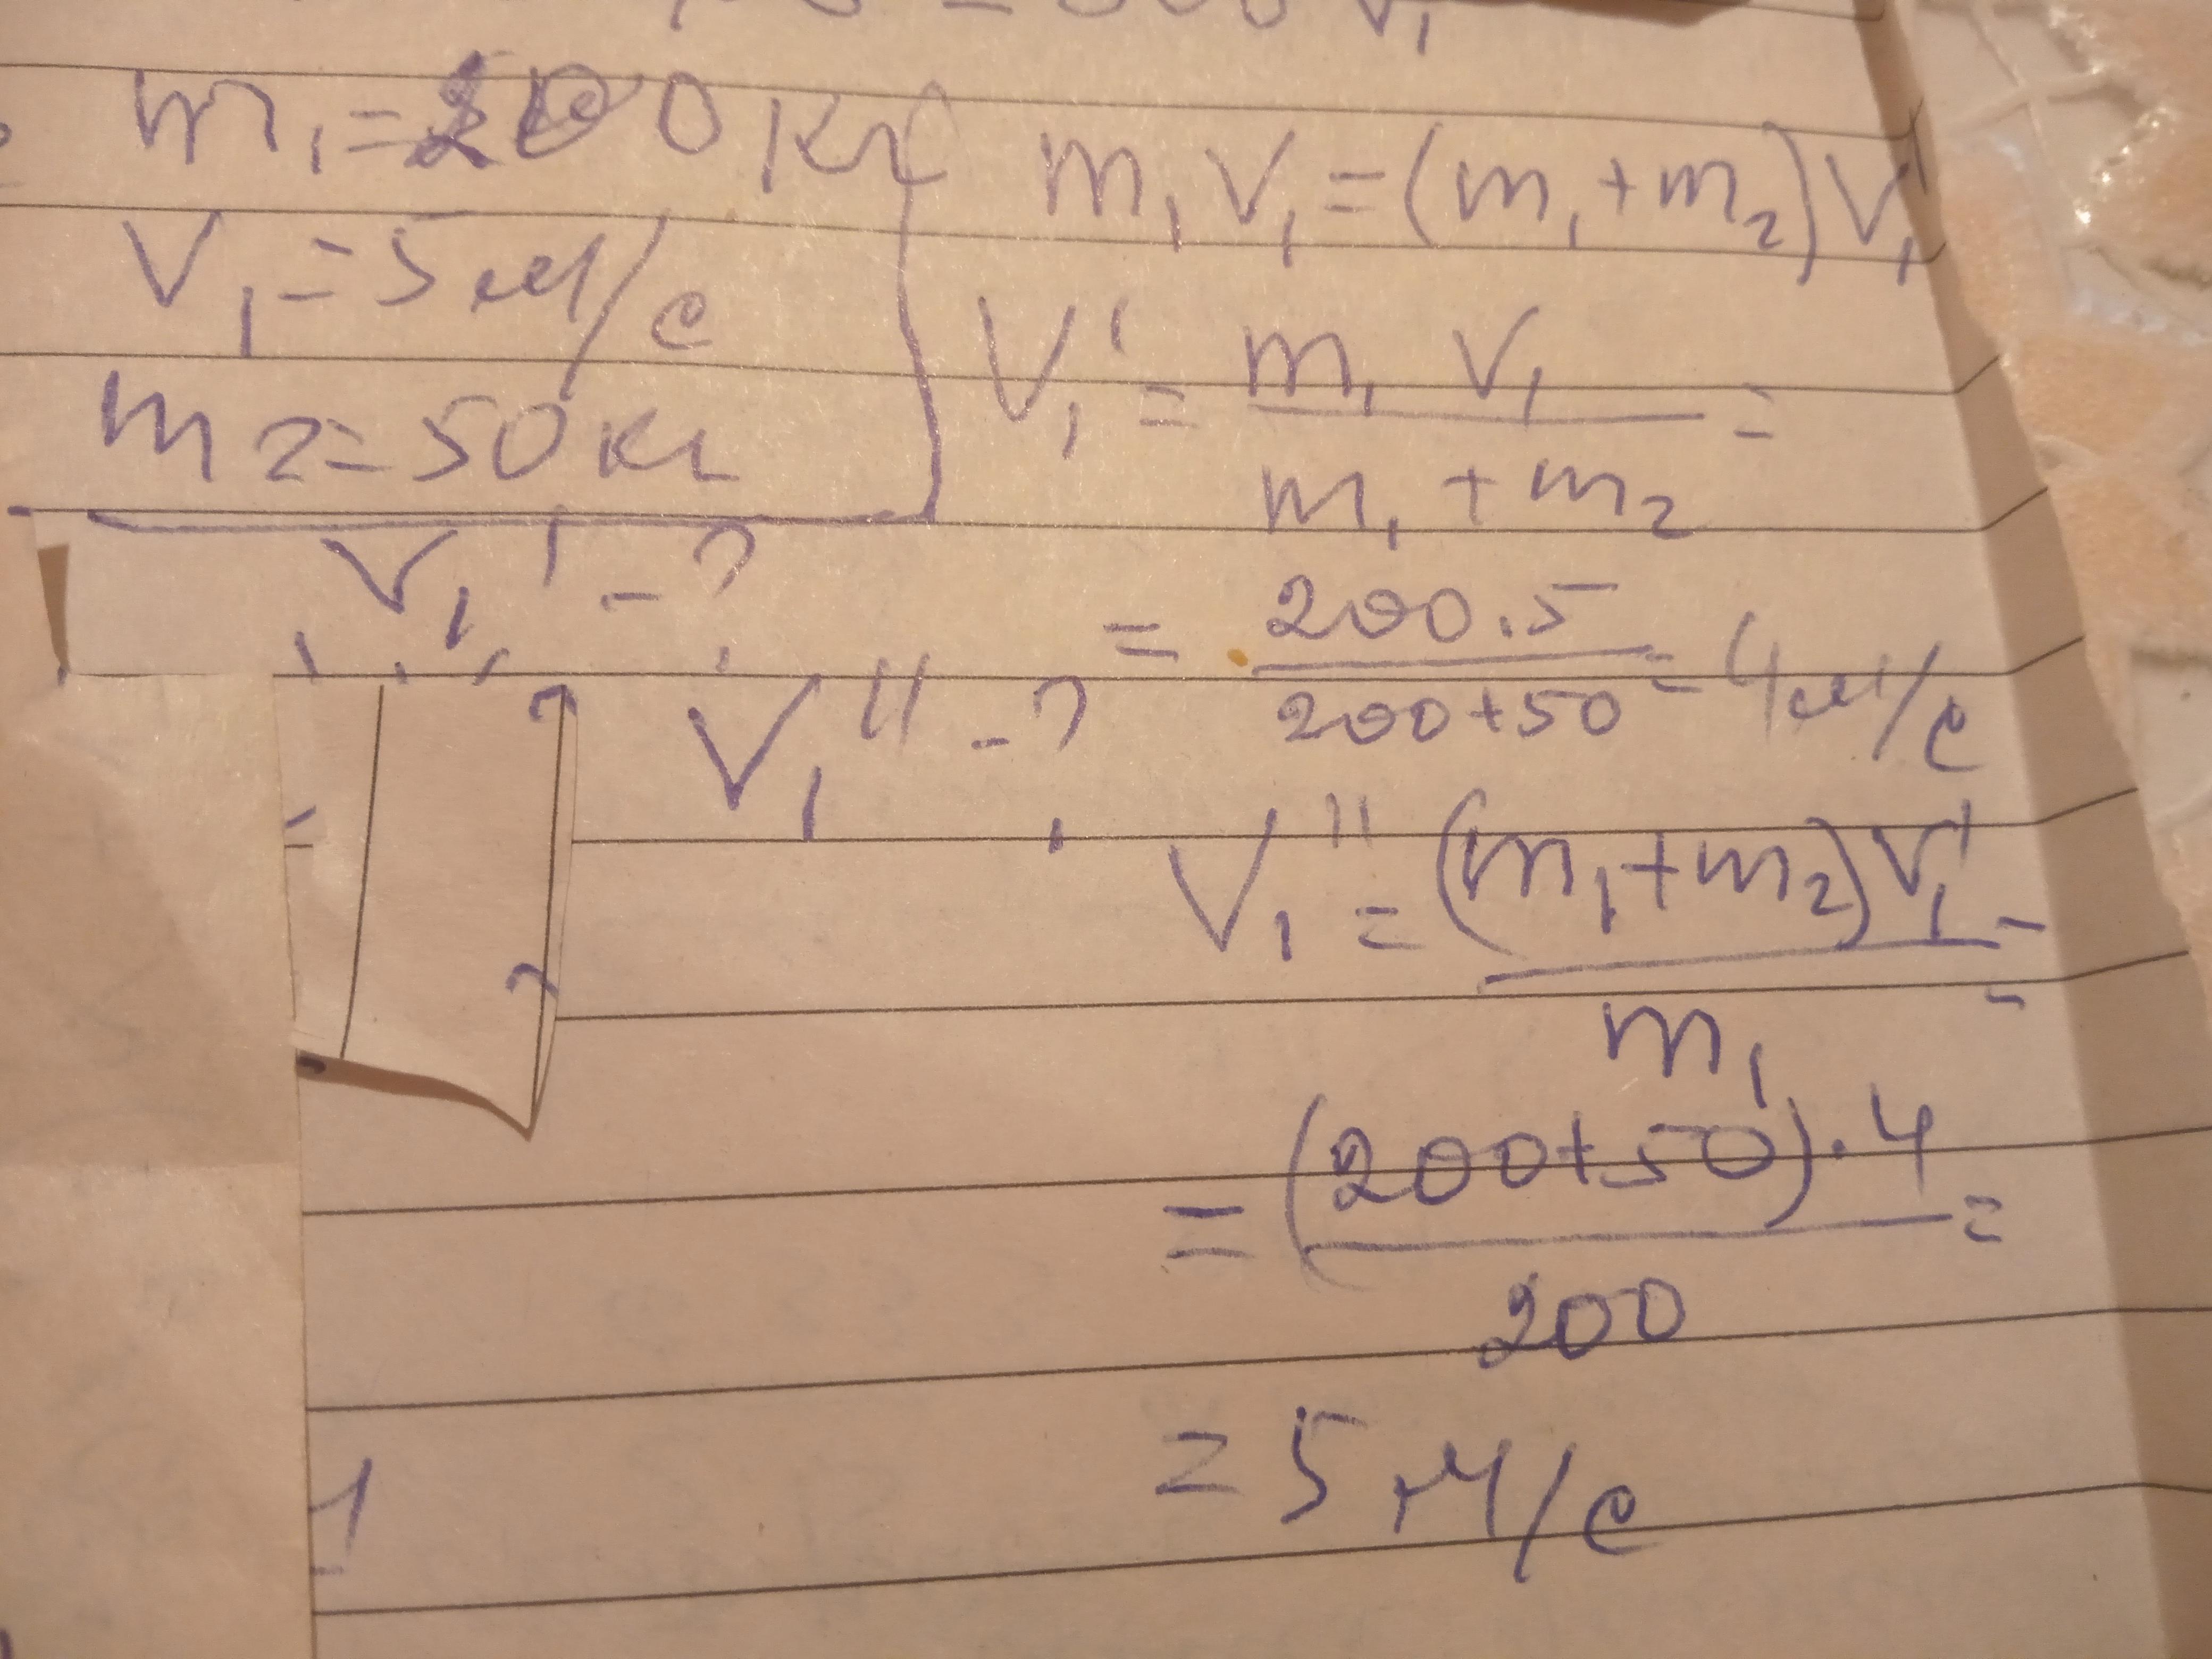 m₁ = 200 кг
V₁ = 5 м/с
m2 = 50 кг
V₁' - ?
V₁'' - ?
m₁ V₁ = (m₁ + m₂) V₁'
V₁' = m₁ V₁ / m₁ + m₂ =
= 200 . 5 / 200 + 50 = 4 м/с
V₁'' = (m₁ + m₂) V₁' / m₁ =
= (200 + 50) . 4 / 200 =
= 5 м/с